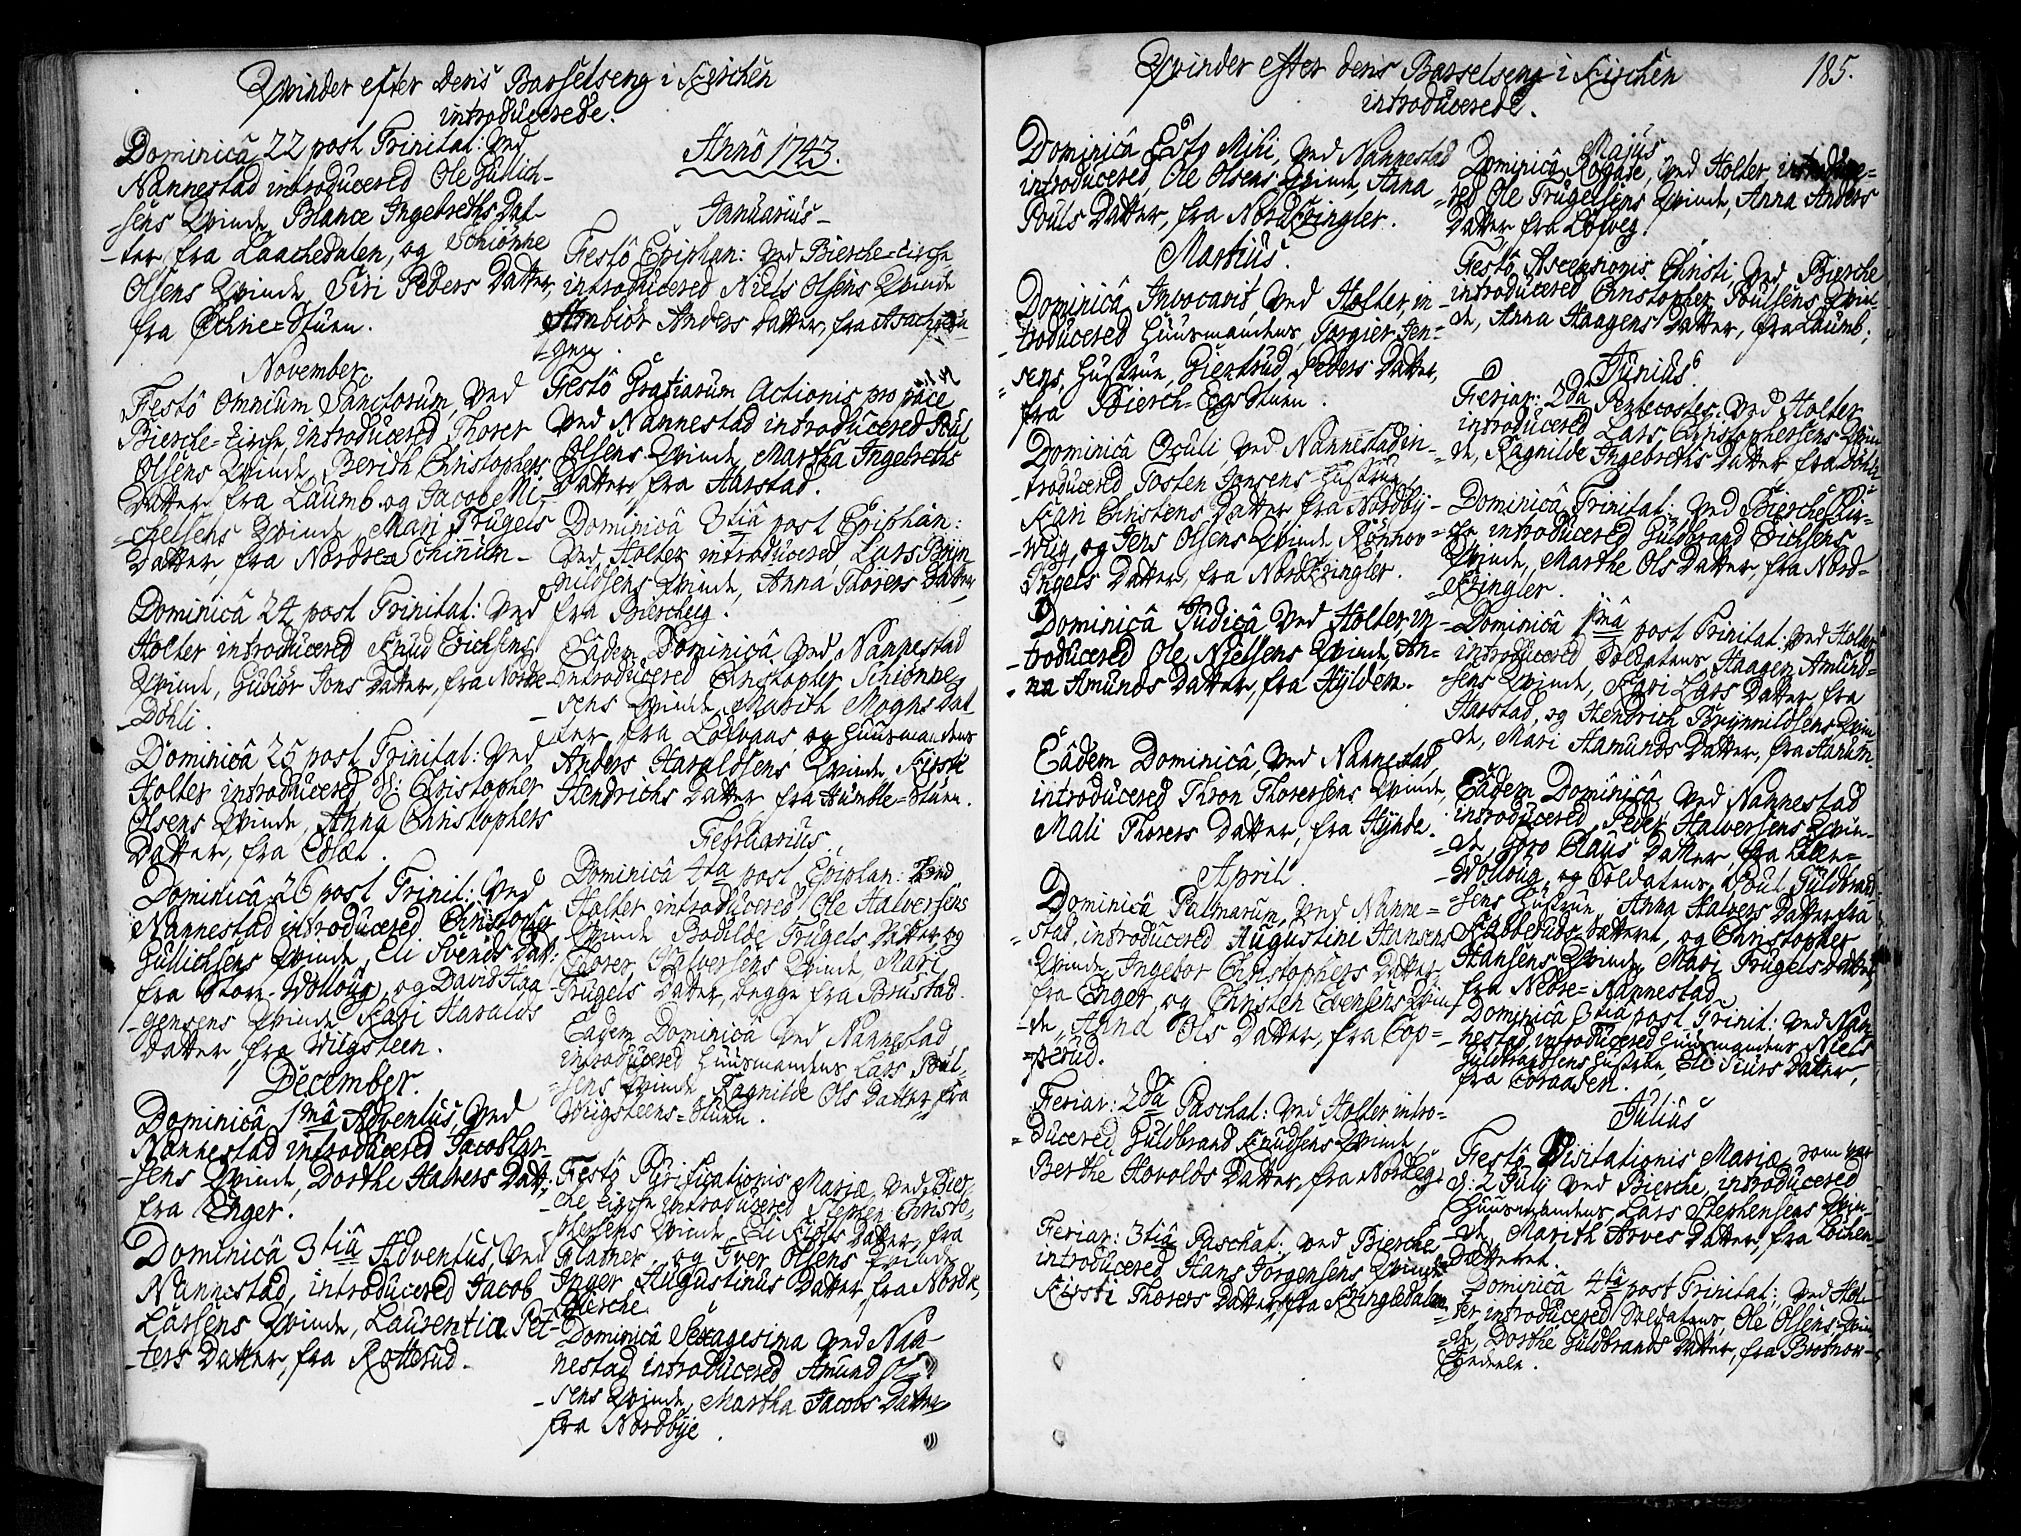 Qvinder efter deris Barselseng i Kirchen
introducerede.
Dominicâ 22 post Trinitat: ved
Nannestad introducered Ole Gullich-
-sens Qvinde, Blance Ingebreths Dat-
-ter fra Laachedalen, og Schiønne
Olsens Qvinde, Siri Peders Datter,
fra Øchne=Stuen.
November
Festô Omnium Sanctorum, ved
Bierche=Kirche, introducered Thorer
Olsens Qvinde, Berith Christophers
Datter fra Laumb. og Jacob Mi-
-chelsens Qvinde, Mari Trugels
Datter, fra Nordre Schinnem-
Dominicâ 24 post Trinitat: ved
Holter introducered Knud Erichsens
Qvinde, Gubiør Jons Datter, fra Nordre-
-Døhli.
Dominicâ 25 post Trinitat: ved
Holter introducered Christopher
Olsens Qvinde, Anna Christophers
Datter, fra
Dominicâ 26 post Trinit: ved
Nannestad introducered Christopher
Gullichsens Qvinde, Eli Svends Dat:
fra Store-Wolloug, og David Haa-
-gensens Qvinde Kari Haralds
Datter, fra Wiigsteen.
December.
Dominicâ 1mâ Adventus, ved
Nannestad introducered Jacob Lar-
-sens Qvinde, Dorthe Halvers Datt:
fra Enger.
Dominicâ 3tiâ Adventus, ved
Nannestad, introducered Jacob
Larsens Qvinde, Laurentia Pet-
-ters Datter, fra Rotterud.
Annô 1743.
Januarius-
Festô Epiphan: ved Bierche=Kirche
introducered Niels Olsens Qvinde
Anbiør Anders Datter, fra
-gen.
Festô Gratiarum Actionis pro pace
ved Nannestad introducered Poul
Olsens Qvinde, Martha Ingebreths
Datter fra Harstad.
Dominicâ 3tiâ post Epiphan:
ved Holter introducered, Lars Bryn
hildsens Qvinde, Anna Thorers Datter,
fra Biercheig.
Eâdem Dominicâ ved Nannestad
introducered Christopher Schiønne-
sens Qvinde, Marith Moghns Dat-
ter fra Løevaas, og Huusmandens
Anders Haraldsens Qvinde, Kirsti
Hendrichs Datter fra Humble=Stuen.
Februarius.
Dominicâ 4ta post Epiphan: ved
Holter introducered Ole Halversens
Qvinde Bodilde Trugels Datter, og
Thorer Halversens Qvinde, Mari
Trugels Datter, begge fra Brustad.
Eâdem Dominicâ ved Nannestad
introducered Huusmandens Lars Poul-
=sens Qvinde Ragnilde Ols Datter, fra
Wiigsteens=Stuen.
Festô Purificationis Mariæ, ved Bier-
che Kirche introducered Stephen Christo-
phersens Qvinde, Eli Datter, fra
og Iver Olsens Qvinde
Inger Augustinus Datter, fra Nordre
Bierche.
Dominicâ Sexagesima ved Nan-
nestad introducered Amund Ol-
-sens Qvinde, Martha Jacobs Datter,
fra Nordbye.
Qvinder efter deris Barselseng i Kirchen
introducerede.
185.
Dominicâ Esto Mihi, ved Nannestad
introducered, Ole Olsens Qvinde, Anna
Pouls Datter, fra Nord Kringler.
Martius.
Dominicâ Invocavit, ved Holter, in-
-troducered Huusmandens, Torgier Jen-
-sens, Hustrue, Giertrud Peders Datter,
fra Bierch=Egs Stuen.
Dominicâ Oculi, ved Nannestad in-
-troducered Tosten Jonsens Hustrue
Kari Christens Datter fra Nordby-
-wiig, og Jens Olsens Qvinde Rønnov
Ingels Datter, fra Nord Kringler.
Dominicâ Judica ved Holter, in-
-troducered Ole Nielsens Qvinde, An=
=na Amunds Datter, fra Hylden.
Eâdem Dominicâ, ved Nannestad,
introducered Thron Thorersens Qvinde
Mali Thorers Datter, fra Hynde.
April.
Dominicâ Palmarum, ved Nanne=
=stad, introducered Augustini Hansens
Qvinde, Ingebor Christophers Datter,
fra Enger, og Christen Evensens Qvin
-de, Anna Ols Datter, fra Cop=
=perud.
Feriar: 2dâ Paschat: ved Holter intro-
=ducered Guldbrand Knudsens Qvinde,
Berthe Hovolds Datter, fra Nordeeg.
Feriar: 3tiâ Paschat: ved Bierche
introducered Hans Jørgensens Qvinde
Kirsti Thorers Datter, fra Kringledalen
Majus
Dominicâ Rogate, ved Holter, introduce=
=red Ole Trugelsens Qvinde, Anna Anders
Datter fra Løfveg.
Festô Ascensionis Christi, ved Bierche
introducered Christopher Poulsens Qvin
de, Anna Haagens Datter, fra Laumb;
Junius.
Feriar: 2da Pentecostes: ved Holter
introducered Lars Christophersens Qvin
=de, Ragnilde Ingebreths Datter fra
Dominicâ Trinitat: ved Bierche Kir-
che, introducered Guldbrand Erichsens
Qvinde, Marthe Ols Datter, fra Nord=
=Kringler.
Dominicâ 1mâ post Trinitat: ved Holter
introducered, Soldatens Haagen Amund-
sens Qvinde, Kari Lars Datter fra
Harstad, og Hendrich Brynnildsens Qvin
de, Mari Aamunds Datter, fra Harum-
Eâdem Dominicâ ved Nannestad
introducered, Peder Halversens Qvin-
=de, Goro Claus Datter, fra
-Wolloug, og Soldatens Poul Guldbrand
sens Hustrue, Anna Halvers Datter fra
Kabberuds Datteret, og Christopher
Hansens Qvinde Mari Trugels Datter
fra Nedre=Nannestad
Dominicâ 3tiâ post Trinit: ved Nan
-nestad, introducered Huusmandens Niels
Guldbrandsens Hustrue, Eli Siurs Datter,
fra Coraasen.
Julius
Festô Visitationis Mariæ, som var
d: 2 Julij ved Bierche, introducered
Huusmandens Lars Stephensens Qvin-
-de, Marith Arves Datter, fra Lochen-
Datteret.
Dominicâ 4tâ post Trinitat: ved Hol-
ter introducered Soldatens, Ole Olsens Qvin
=de, Dorthe Guldbrands Datter, fra